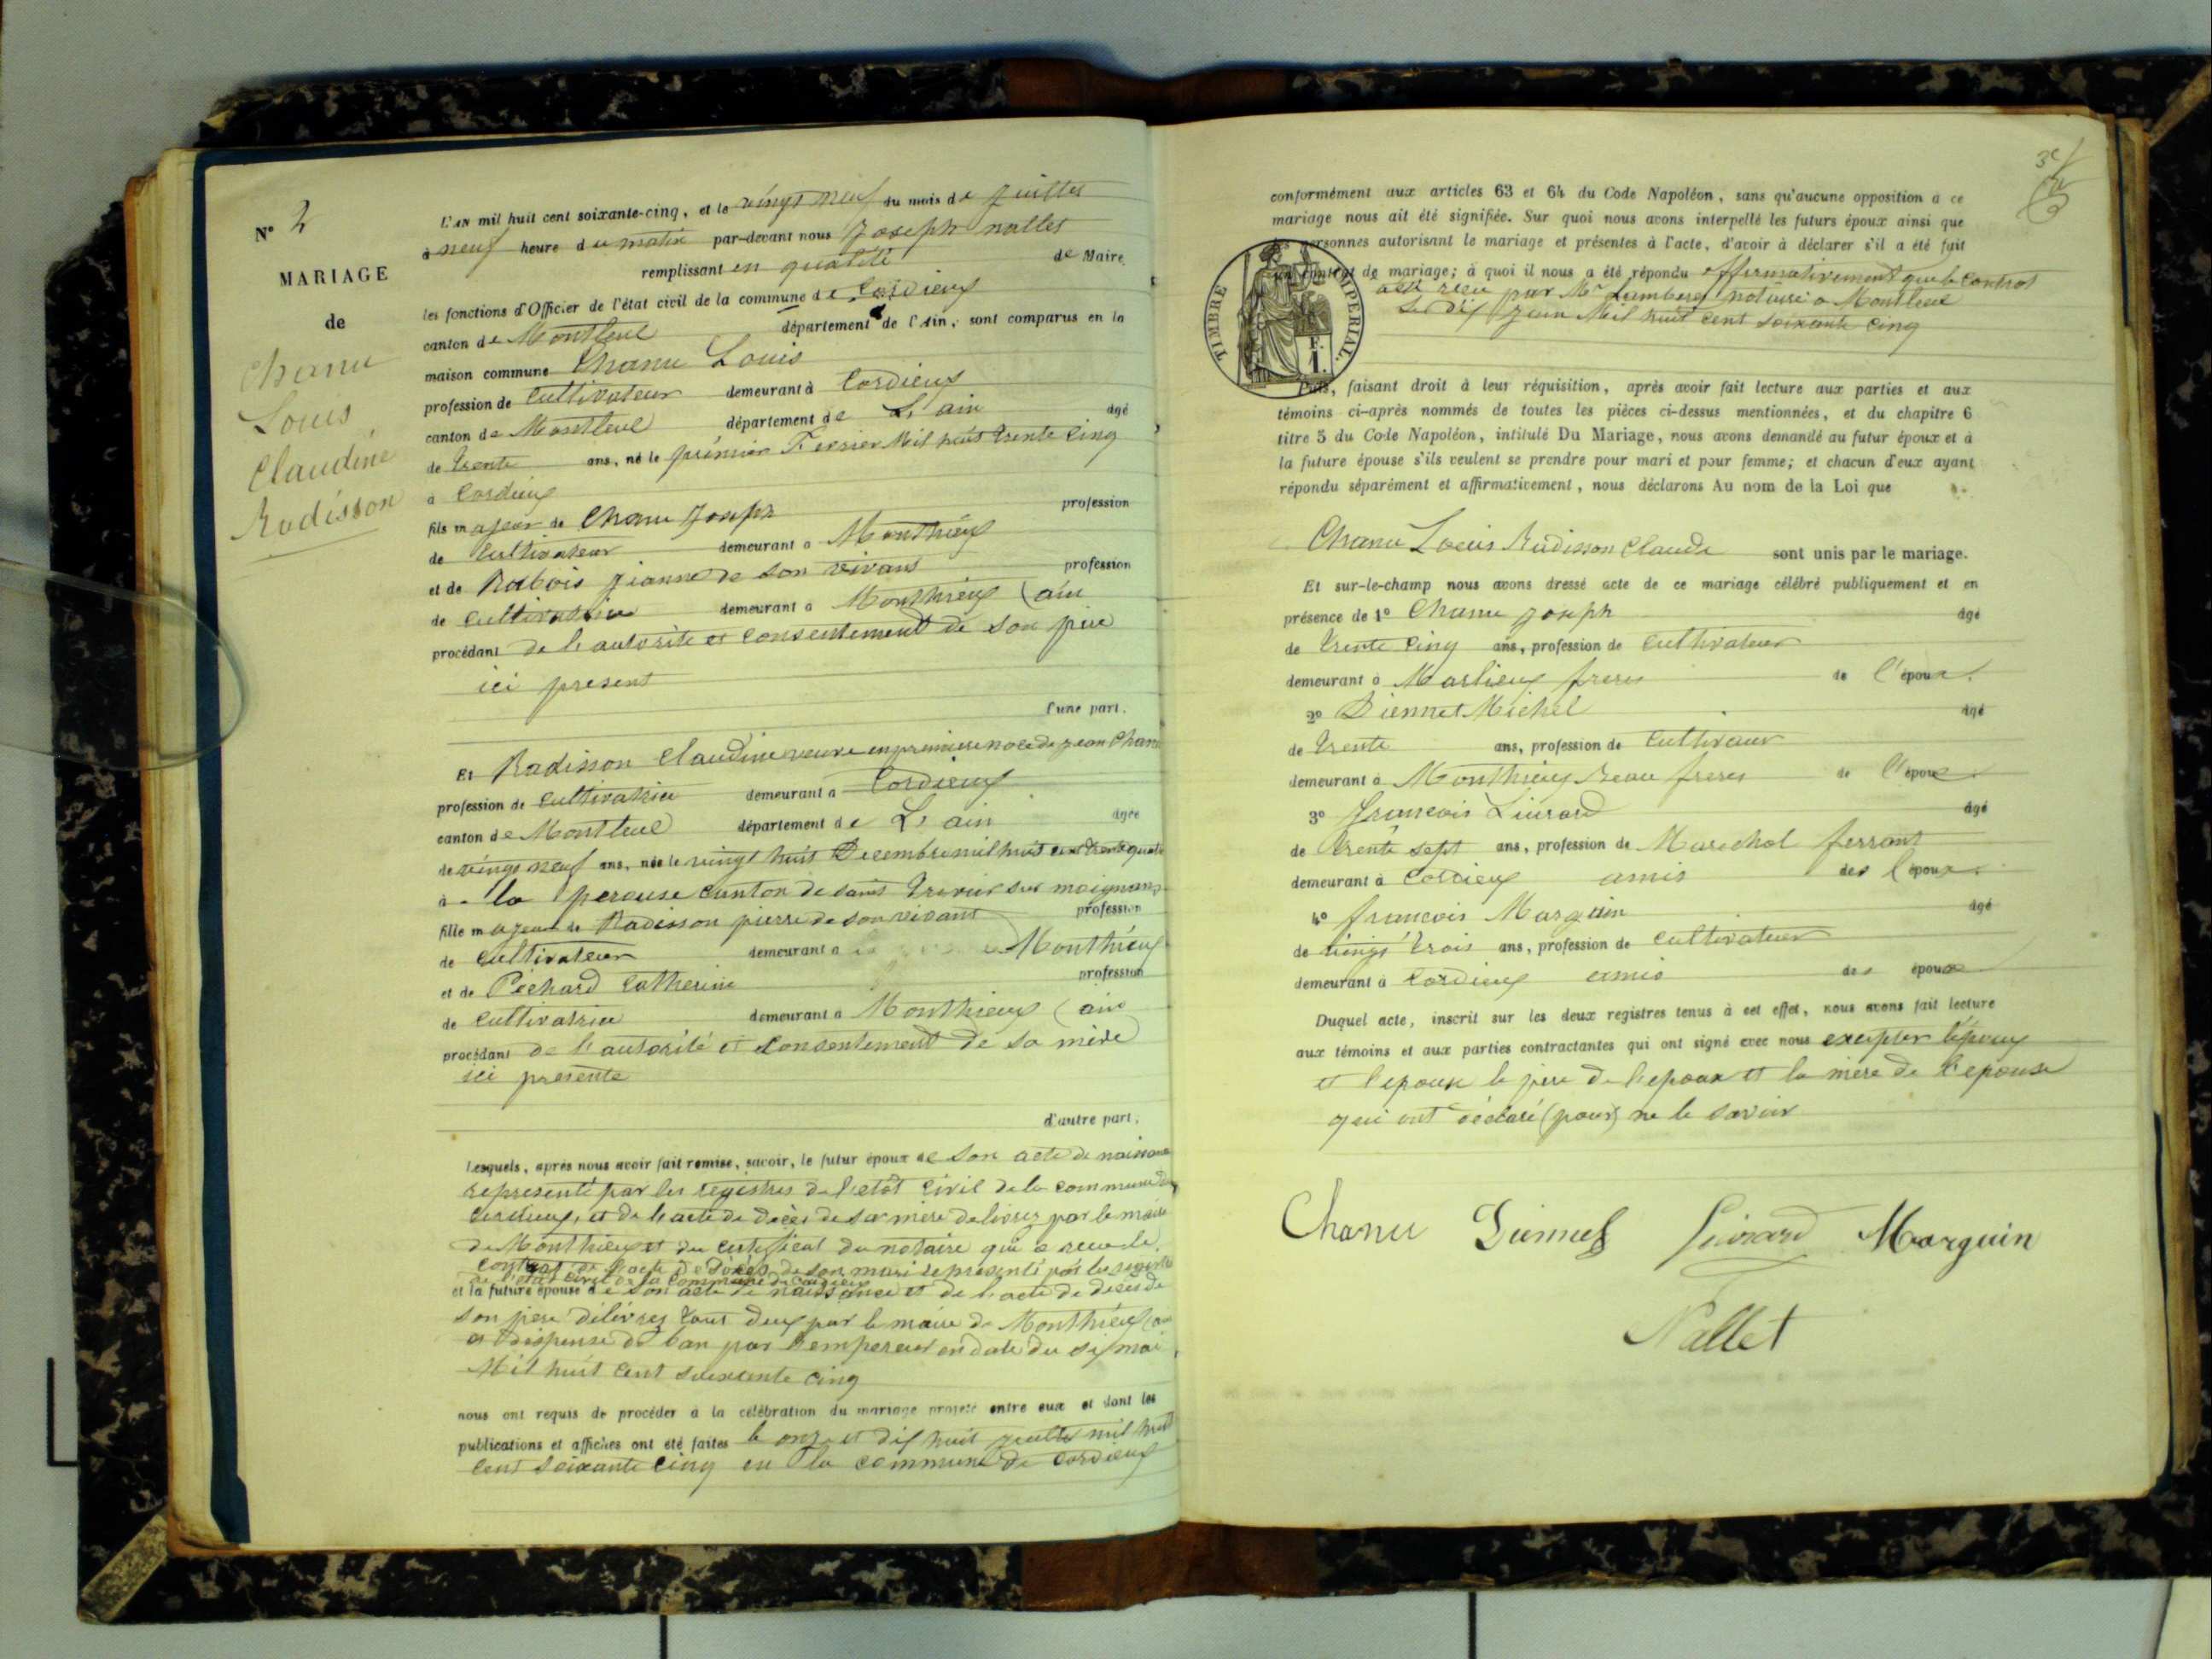 N° 2
MARIAGE
de
Chanu
Louis
Claudine
Radisson
L'AN mil huit cent soixante-cinq, et le vingt neuf du mois de juillet
à neuf heure du matin par-devant nous Joseph nallet
remplissant en qualité de Maire
les fonctions d'Officier de l'état civil de la commune de Cordieux
canton de Montluel département de l'Ain, sont comparus en la
maison commune Chanu Louis
profession de Cultivateur demeurant à Cordieux
canton de Montluel département de L'ain âgé
de trente ans, né le premier Fevrier Mil huit trente Cinq
à Cordieux
fils majeur de Chanu Joseph profession
de Cultivateur demeurant à Monthieux
et de Rabois Jeanne de son vivant profession
de Cultivatrice demeurant à Monthieux (ain
procédant de l'autorité et consentement de son père
ici present
d'une part.
Et Radisson Claudine veuve en premiere noce de Jean Chanu
profession de Cultivatrice demeurant à Cordieux
canton de Montluel département de L'ain âgée
de vingt neuf ans, née le vingt huit Decembre mil huit cent trente quatre
à la perouse Canton de saint trivier sur moignans
fille majeure de Radisson pierre de son vivant profession
de Cultivateur demeurant à Monthieux
et de Péchard Catherine profession
de Cultivatrice demeurant à Monthieux (ain
procédant de l'autorité et Consentement de sa mère
ici presente
d'autre part.
Lesquels, après nous avoir fait remise, savoir, le futur époux de son acte de naissance
representé par les registres de l'etat Civil de la commune de
Cordieux, et de l'acte de decès de sa mere delivrez par le maire
de Monthieux et du certificat du notaire qui a recu le
Contrat et l'acte de Décès de son mari representé par les registres
de l'etat Civil de la Commune de Cordieux
et la future épouse de son acte de naissance et de l'acte de deces de
son pere délivrez tous deux par le maire de Monthieux (ain
et dispense de ban par l'empereur en date du six mai
Mil huit cent soixante cinq
nous ont requis de procéder à la célébration du mariage projeté entre eux et dont les
publications et affiches ont été faites le onze et dix huit juillet mil huit
Cent soixante Cinq en la commune de Cordieux
conformément aux articles 63 et 64 du Code Napoléon, sans qu'aucune opposition à ce
mariage nous ait été signifiée. Sur quoi nous avons interpellé les futurs époux ainsi que
les personnes autorisant le mariage et présentes à l'acte, d'avoir à déclarer s'il a été fait
un contrat de mariage; à quoi il nous a été répondu affirmativement que le Contrat
été recu par Mr Lumberg notaire à Montluel
Le dix Juin Mil huit cent soixante Cinq
TIMBRE IMPERIAL
F. 1.
Puis, faisant droit à leur réquisition, après avoir fait lecture aux parties et aux
témoins ci-après nommés de toutes les pièces ci-dessus mentionnées, et du chapitre 6
titre 5 du Code Napoléon, intitulé Du Mariage, nous avons demandé au futur époux et à
la future épouse s'ils veulent se prendre pour mari et pour femme; et chacun d'eux ayant
répondu séparément et affirmativement, nous déclarons Au nom de la Loi que
Chanu Louis Radisson Claude sont unis par le mariage.
Et sur-le-champ nous avons dressé acte de ce mariage célébré publiquement et en
présence de 1° Chanu Joseph âgé
de trente Cinq ans, profession de Cultivateur
demeurant à Marlieux frere de l'époux
2° Diennet Michel âgé
de trente ans, profession de Cultivateur
demeurant à Monthieux Beau frere de l'époux
3° francois Liurard âgé
de trente sept ans, profession de Marechal ferrant
demeurant à Cordieux amis des époux
4° francois Marguin âgé
de vingt trois ans, profession de Cultivateur
demeurant à Cordieux amis des époux
Duquel acte, inscrit sur les deux registres tenus à cet effet, nous avons fait lecture
aux témoins et aux parties contractantes qui ont signé avec nous excepter l'epoux
et l'epouse le père de l'epoux et la mère de l'epouse
qui ont déclaré (pour) ne le savoir
Chanu Diennet Liurard Marguin
Nallet